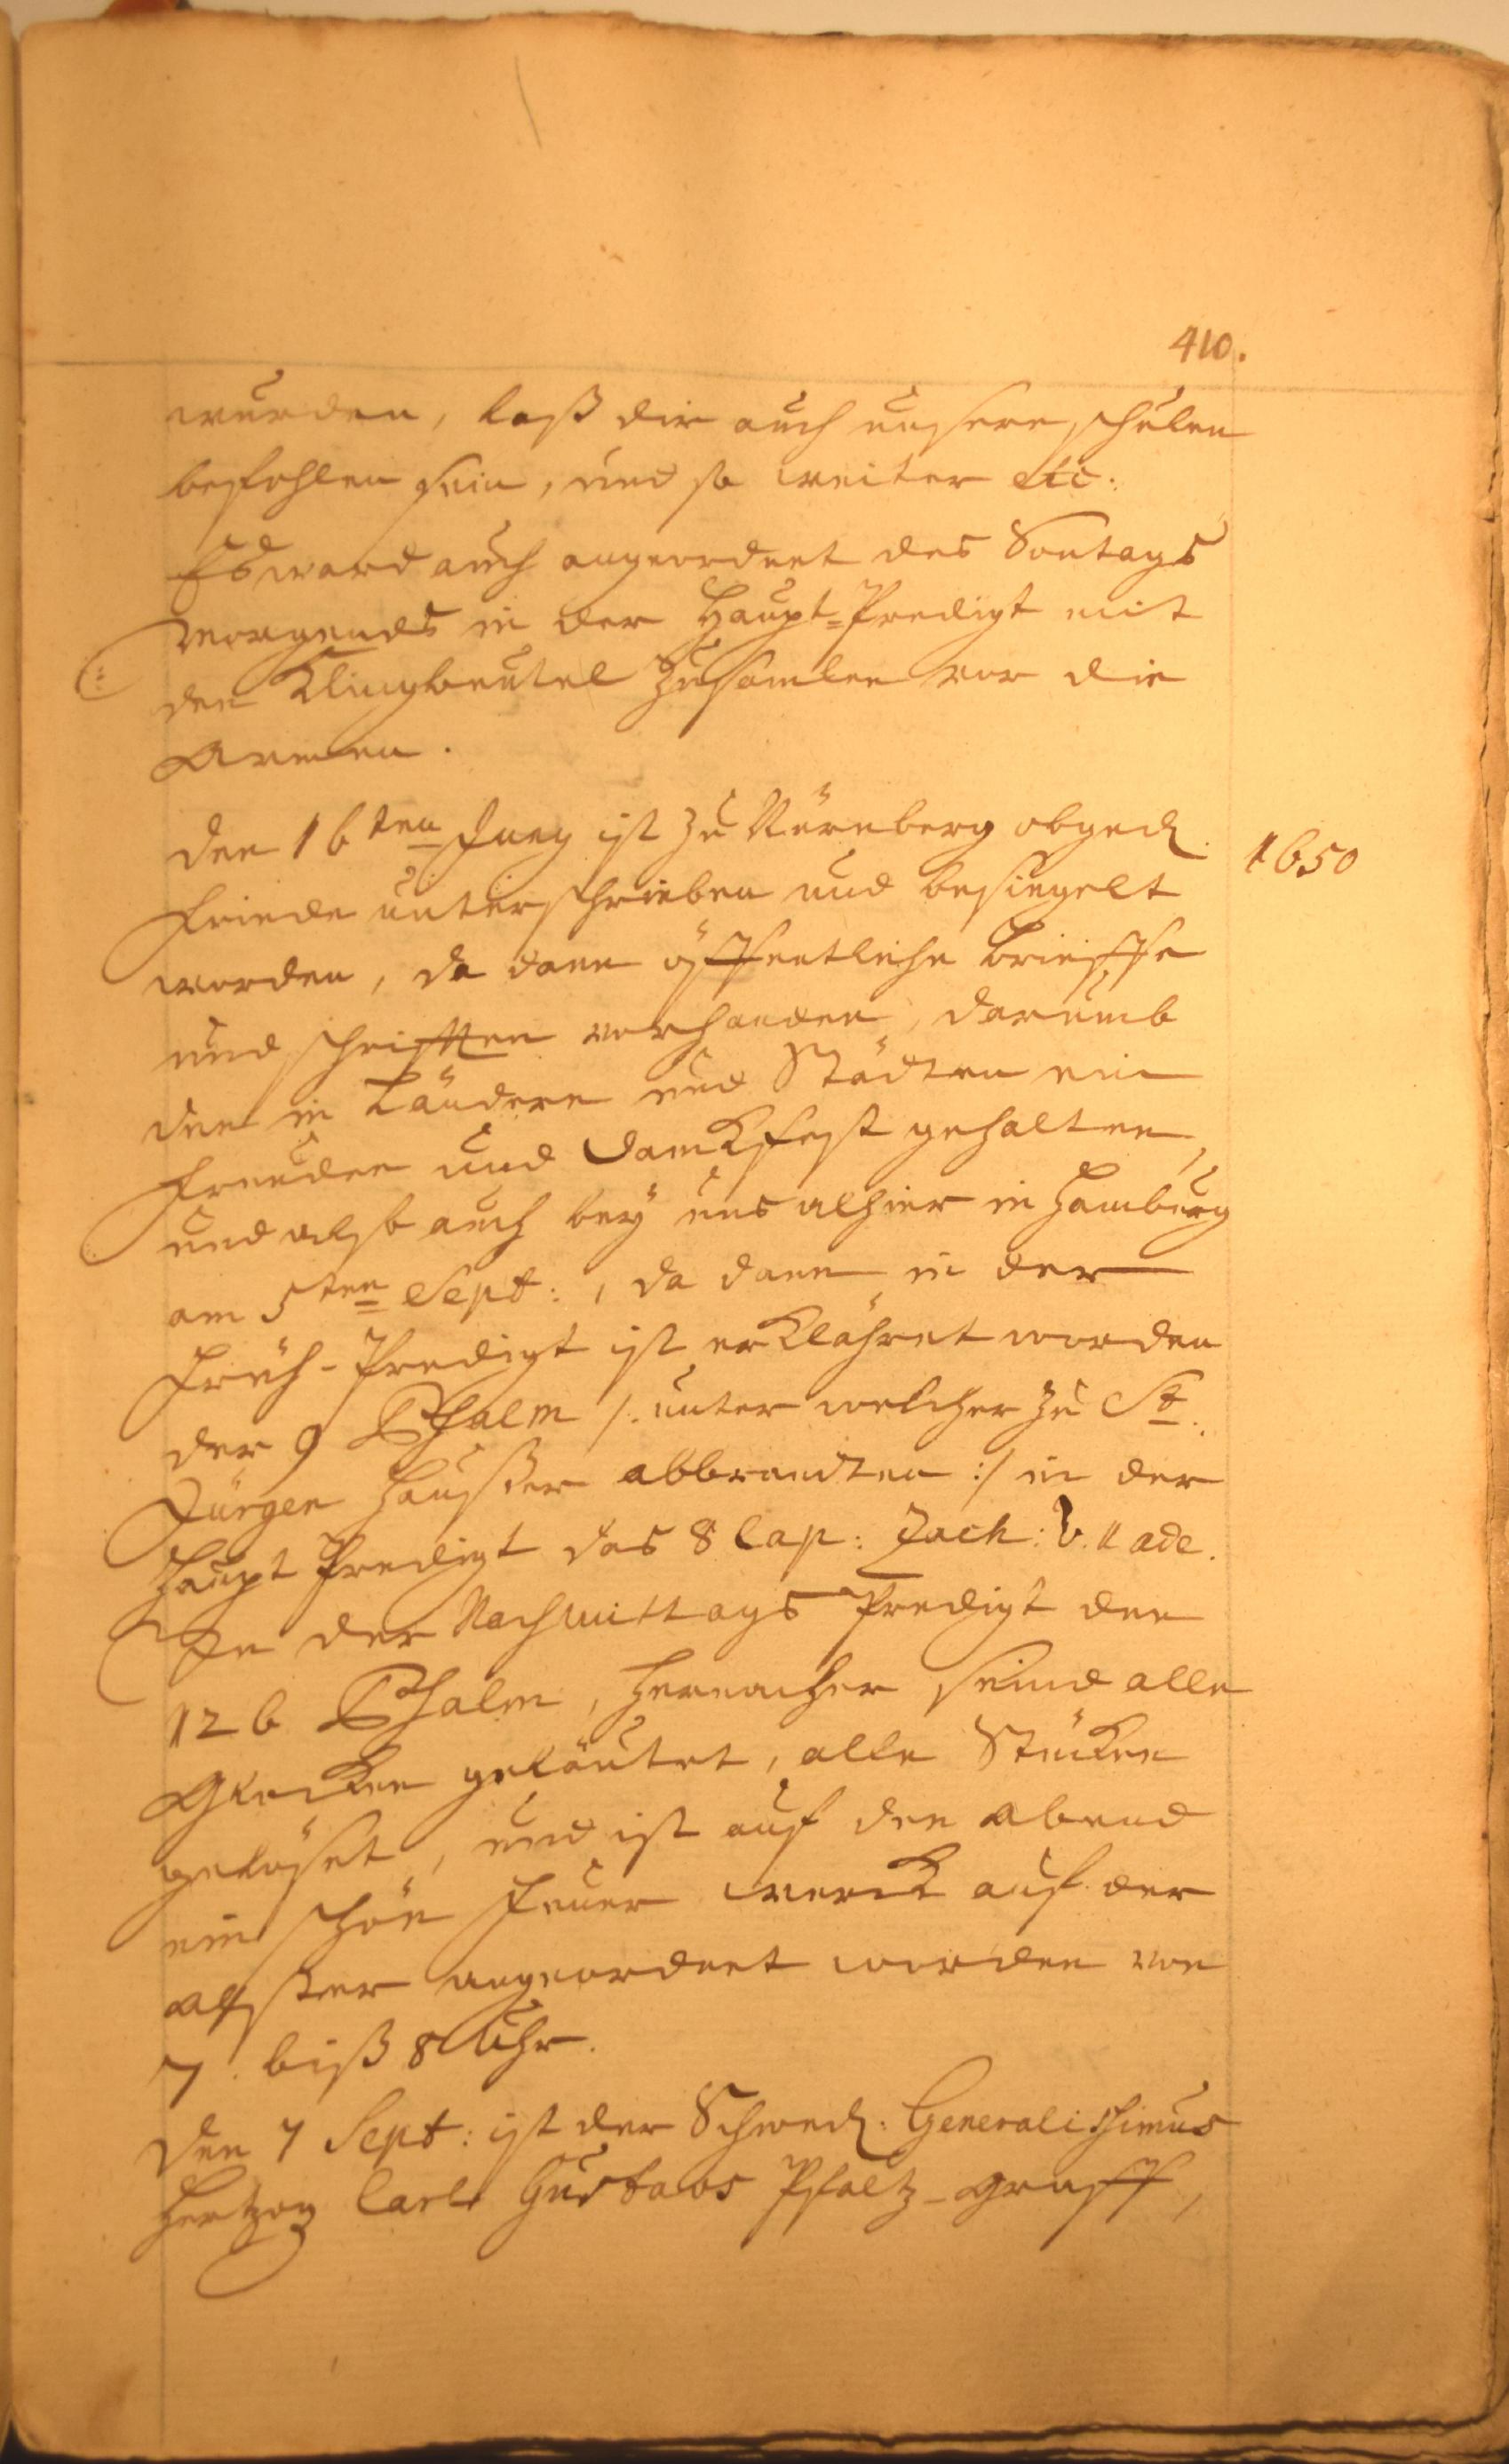 410.
wurden, laß dir auch unsere schulen
befohlen sein, und so weiter etc.
Es ward auch angeordnet des Sontags
morgends in der Haupt=Predigt mit
den Klingbeutel zusamlen vor die
Armen.
Den 16ten Juny ist zu Nürnberg obged.
1650
Friede unterschrieben und besiegelt
worden, da dann öffentliche Brieffe
und schrifften verhanden, darumb
den in Ländern und Städten ein
Freuden und Danckfest gehalten,
und also auch bey uns alhier in Hamburg
am 5ten Sept:, da dann in der
Früh-Predigt ist erklähret worden
der 9 Psalm /: unter welcher zu St.
Jürgen Häusser abbrandten :/ in der
Haupt Predigt das 8 Cap: Zach: V.
In der Nachmittags Predigt den
126 Psalm, hernacher seind alle
Glocken geläutet, alle Stücken
gelöset, und ist auf den Abend
ein schön Feuer werck auf der
Alster angeordnet worden von
7. biß 8 Uhr.
Den 7 Sept: ist der Schwed: Generalissimus
Hertzog Carl Gustavos Pfaltz-Graff,